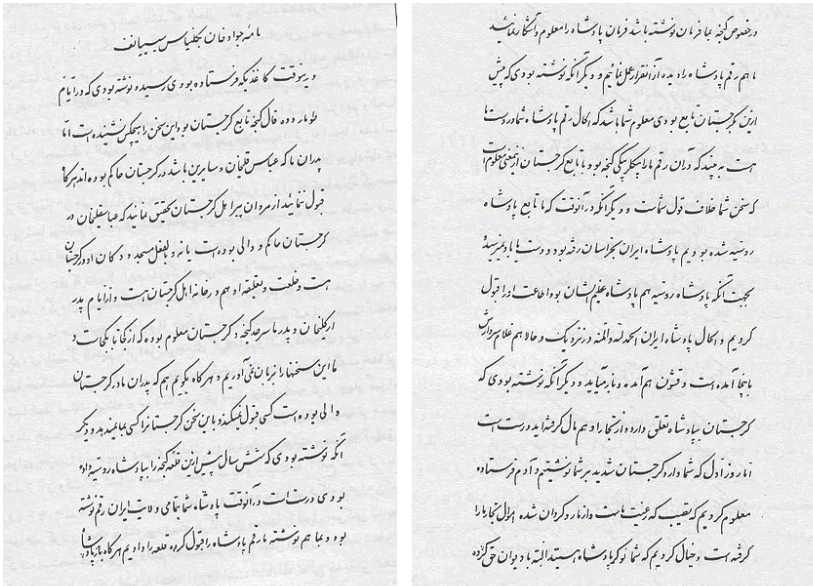 نامه جواد خان بکنیاس سیسیانف
در ینوقت کاغذیکه فرستاده بودی رسید و نوشته بودی که در ایام
طومار دوه فال گنجه تابع گرجستان بود این سخن را هیچکس نشنیده است اما
پدران ما که عباسقلیخان و سایرین باشد در گرجستان حاکم بوده اند هرگاه
قبول ننمائید از مردان پیر اهل گرجستان تحقیق نمائید که عباسقلیخان در
گرجستان حاکم و والی بوده است یا نه و بالفعل مسجد و دکان او در گرجستان
هست و خلعت و تعلیقه او هم در خانه اهل گرجستان هست و از ایام پدر
ارکلیخان و پدر ما سرحد گنجه و گرجستان معلوم بوده که از کجا تا بکجاست و
ما این سخنها را بزبان نمی آوریم و هرگاه بگویم هم که پدران ما در گرجستان
والی بوده است کسی قبول نمیکند و با این سخن گرجستانرا کسی بما نمیدهد و دیگر
آنکه نوشته بودی که شش سال پیش ازین قلعه گنجه را بپادشاه روسیه داده
بودی درست است در آنوقت پادشاه شما تمامی ولایت ایران رقم نوشته
بود و بما هم نوشته ما رقم پادشاه را قبول کرده قلعه را دادیم هرگاه باز پادشاه
در خصوص گنجه بما فرمان نوشته باشد فرمان پادشاه را معلوم و آشکار نمائید
ما هم رقم پادشاه را دیده از آنقرار عمل نمائیم و دیگر آنکه نوشته بودی که پیش
ازین گرجستان تابع بودی معلوم شما باشد که الحال رقم پادشاه شما در دست ما
هست به بیند که در آن رقم ما را بیگلربیگی گنجه بود یا تابع گرجستان از آنمعنی معلوم است
که سخن شما خلاف قول شماست و دیگر آنکه در آنوقت که ما تابع پادشاه
روسیه شده بودیم پادشاه ایران بخراسان رفته بود و دست ما باو نمیرسید
بجهت آنکه پادشاه روسیه هم پادشاه عظیم الشان بوده اطاعت او را قبول
کردیم و الحال پادشاه ایران الحمد لله والمنه در نزدیک و حالا هم غلام سردارش
باینجا آمده است و قشون هم آمده و باز میآید و دیگر آنکه نوشته بودی که
گرجستان بپادشاه تعلق دارد و از تجار او هم مال گرفته اید درست است
اما روز اول که شما وارد گرجستان شدید بر شما نوشتیم و آدم فرستاده
معلوم کردیم که نصیب که رعیت ماست و از ما رو گردان شده اموال تجار ما را
گرفته است و خیال کردیم که شما نوکر پادشاه هستید البته با دیوان حق کرده